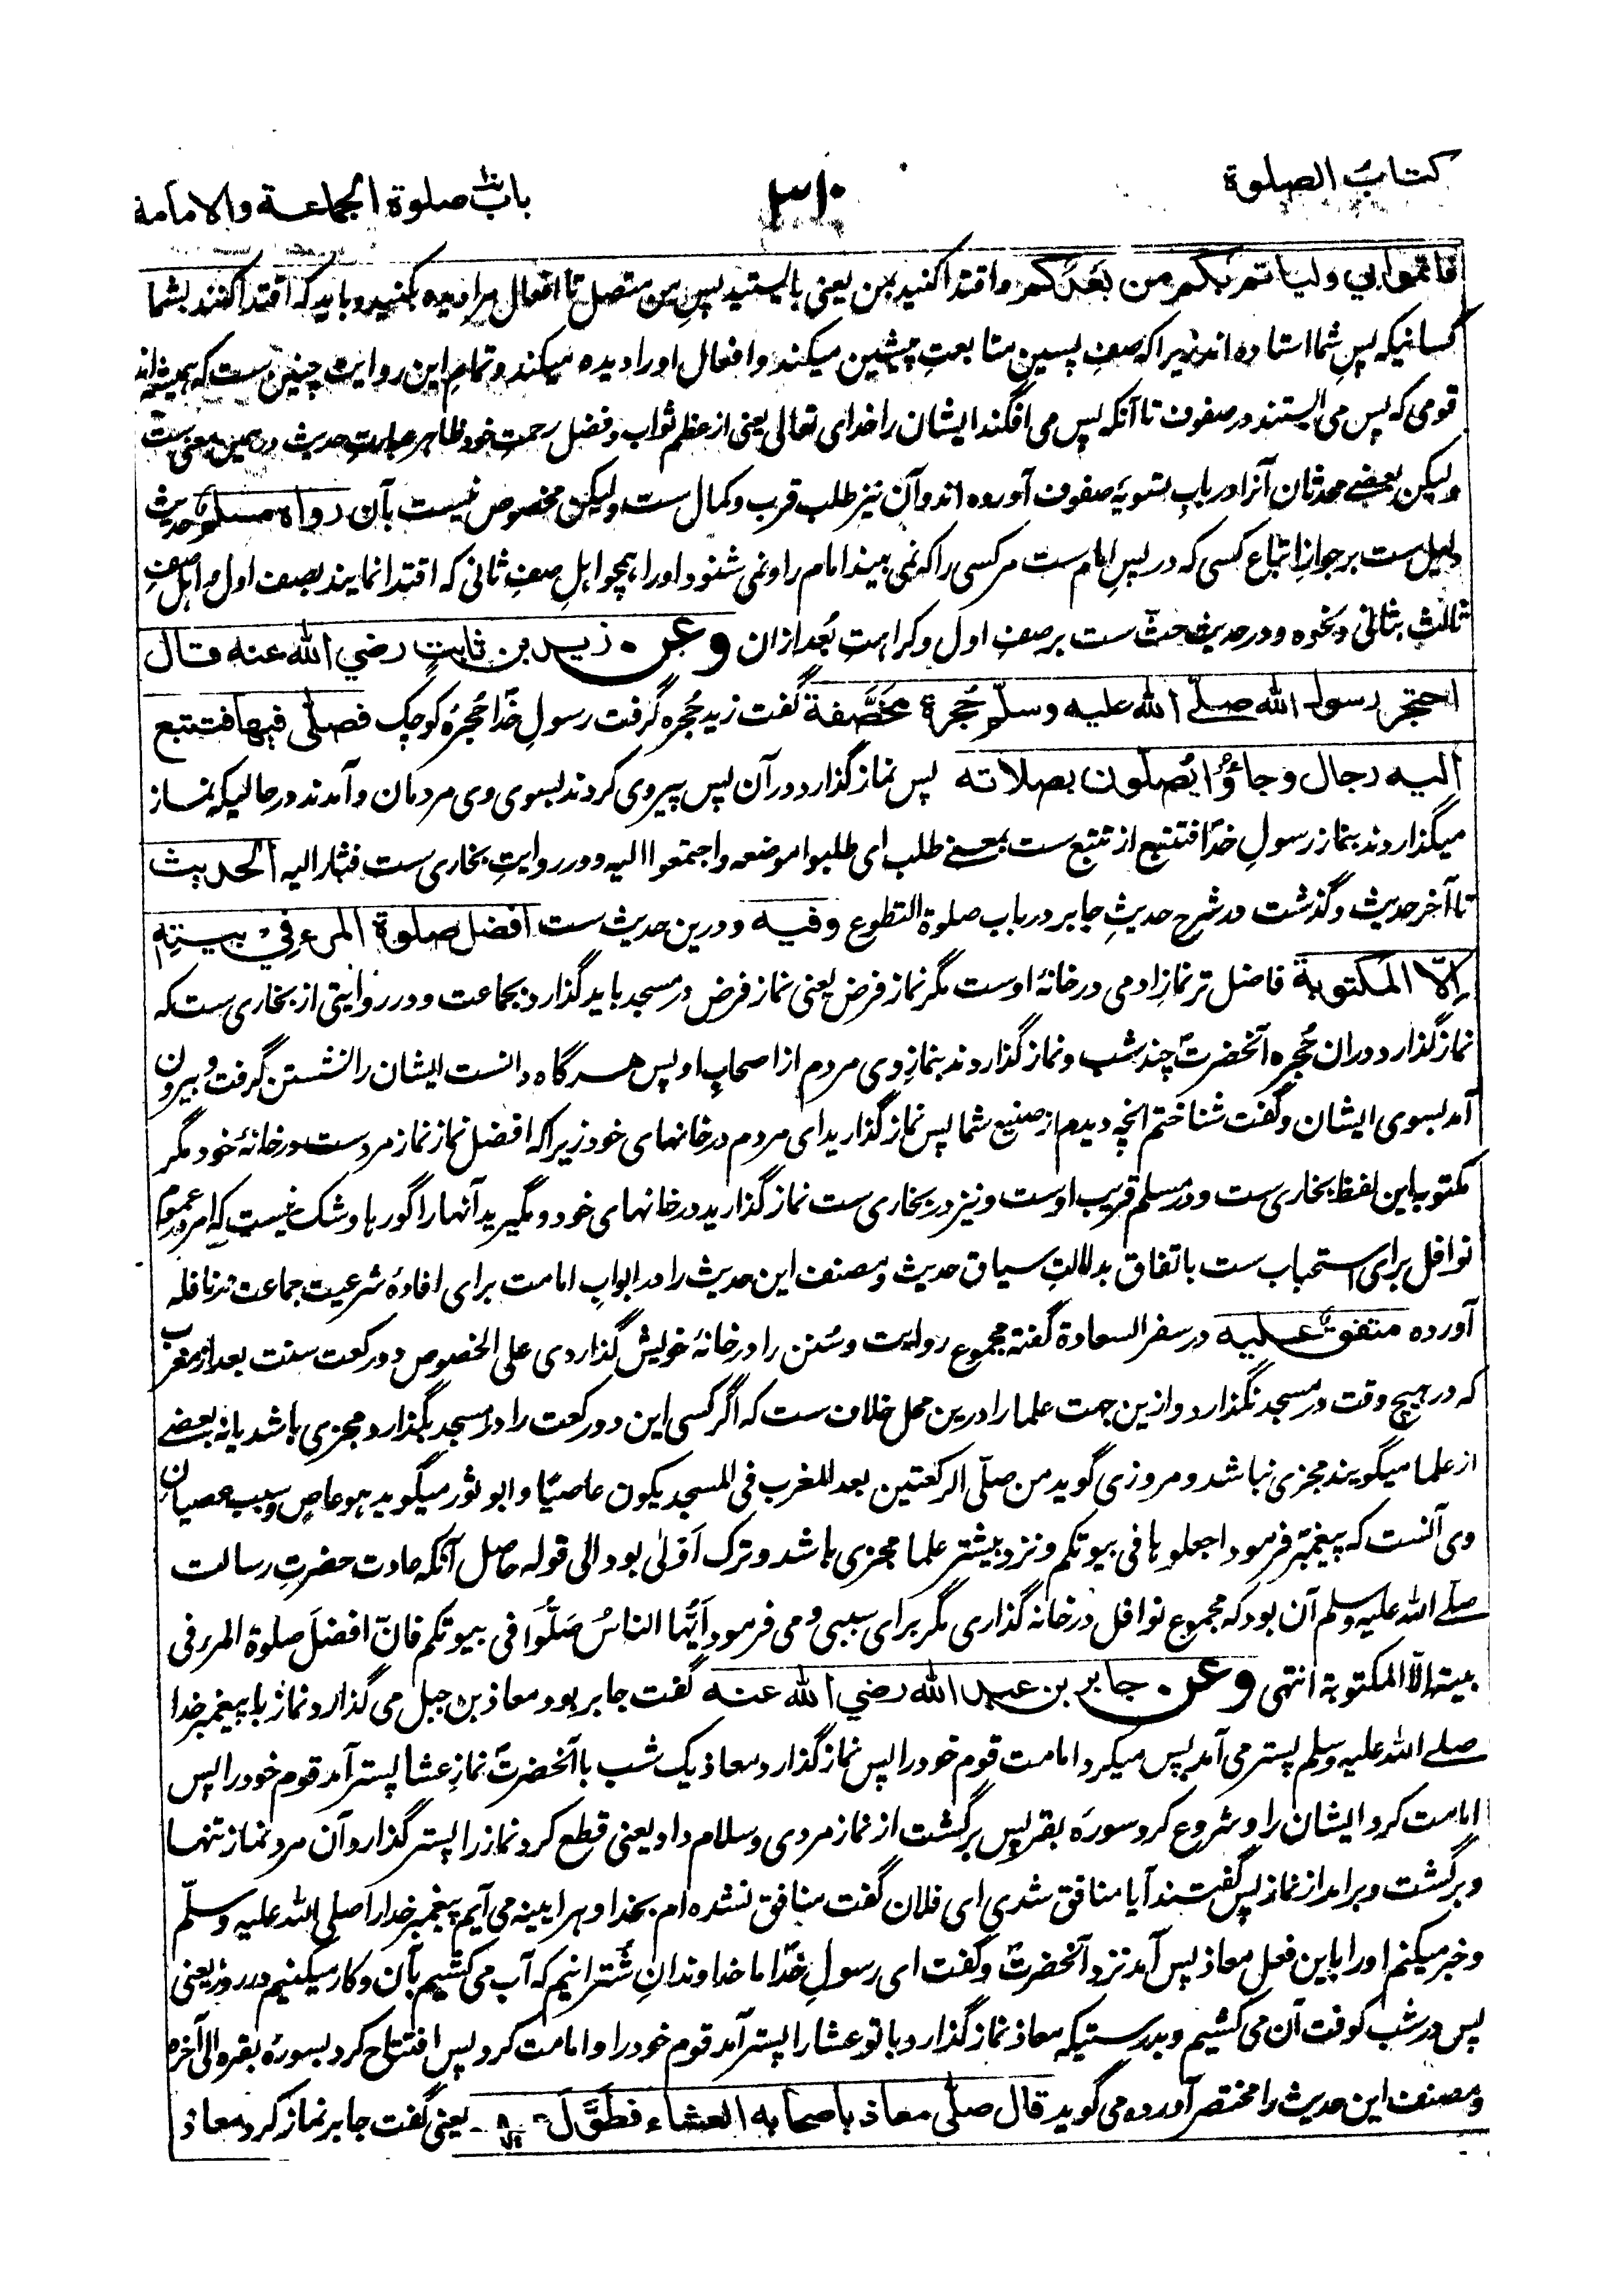 کتاب الصلوة ۳۱۰ باب صلوة الجماعة والامامة
فاتموا بي ولياتم بكم من بعدكم واقتدا کنید بمن یعنی بایستید پسِ من متصل تا افعال مرا دیده بکنید و باید که اقتدا کنند بشما
کسانیکه پسِ شما استاده اند زیرا که صفِ پسین متابعتِ پیشین میکند و افعال او را دیده میکند و تمامِ این روایت چنین ست که همیشه اند
قومی که پس می ایستند در صفوف تا آنکه پس می افگند ایشان را خدای تعالی یعنی از عظم ثواب و فضل رحمتِ خود ظاهر عبارتِ حدیث در همین معنی ست
ولیکن بعضے محدثان آنرا در باب تسویهٔ صفوف آورده اند و آن نیز طلب قرب و کمال ست ولیکن مخصوص نیست بآن رواه مسلم حدیث
دلیل ست بر جوازِ اتباع کسی که در پسِ امام ست مر کسی را که نمی بیند امام را و نمی شنود او را همچو اهلِ صفِ ثانی که اقتدا نمایند بصف اول و اهل صفِ
ثالث بثانی و نحوه و در حدیث حثّ ست بر صفِ اول و کراهتِ بُعد از ان وعن زيد بن ثابت رضي الله عنه قال
احتجر رسول الله صلى الله عليه وسلم حُجرة مخصّفة گفت زید حُجره گرفت رسولِ خدا حُجرهٔ کوچک فصلّى فيها فتتبع
اليه رجال وجاؤا يُصلون بصلاته پس نماز گذارد در آن پس پیروی کردند بسوی وی مردمان و آمدند در حالیکه نماز
میگذاردند بنماز رسولِ خدا فتتبع از تتبع ست بمعنے طلب ای طلبوا موضعه واجتمعوا الیه و در روایتِ بخاری ست فثار الیه الحديث
تا آخر حدیث و گذشت در شرحِ حدیثِ جابر در باب صلوة التطوع وفيه و درین حدیث ست افضل صلوة المرء في بيته
إلّا المكتوبة فاضل تر نمازِ آدمی در خانهٔ اوست مگر نماز فرض یعنی نماز فرض در مسجد باید گذارد بجماعت و در روایتی از بخاری ست که
نماز گذارد در ان حُجره آنحضرتؐ چند شب و نماز گذاردند بنمازِ وی مردم از اصحابِ او پس هر گاه دانست ایشان را نشستن گرفت و بیرون
آمد بسوی ایشان و گفت شناختم انچه دیدم از صنیع شما پس نماز گذارید ای مردم در خانهای خود زیرا که افضل نماز نماز مردست در خانهٔ خود مگر
مکتوبه این لفظ بخاری ست و در مسلم قریب اوست و نیز در بخاری ست نماز گذارید در خانهای خود و مگیرید آنها را گورها و شک نیست که امر در عموم
نوافل برای استحباب ست باتفاق بدلالتِ سیاق حدیث و مصنف این حدیث را در ابوابِ امامت برای افادهٔ شرعیت جماعت در نافله
آورده متفق عليه در سفر السعادة گفته مجموع روایت و سُنن را در خانهٔ خویش گذاردی علی الخصوص دو رکعت سنت بعد از مغرب
که در هیچ وقت در مسجد نگذارد و ازین جهت علما را درین محل خلاف ست که اگر کسی این دو رکعت را در مسجد بگذارد مجزی باشد یا نه بعضے
از علما میگویند مجزی نباشد و مروزی گوید من صلّی الرکعتین بعد المغرب فی المسجد یکون عاصیًا و ابو ثور میگوید هو عاصٍ و سبب عصیانِ
وی آنست که پیغمبر فرمود اجعلوها فی بیوتکم و نزد بیشتر علما مجزی باشد و ترک اَولٰی بود الی قوله حاصل آنکه عادت حضرتِ رسالت
صلے الله علیه وسلم آن بود که مجموع نوافل در خانه گذاری مگر برای سببی و می فرمود اَیُّها الناسُ صَلُّوا فی بیوتکم فانّ افضلَ صلوة المرء فی
بیته الّا المکتوبة انتهی وعن جابر بن عبد الله رضي الله عنه گفت جابر بود معاذ بن جبل می گذارد نماز با پیغمبر خدا
صلے الله علیه وسلم پستر می آمد پس میکرد امامت قوم خود را پس نماز گذارد معاذ یک شب با آنحضرتؐ نمازِ عشا پستر آمد قوم خود را پس
امامت کرد ایشان را و شروع کرد سورهٔ بقر پس برگشت از نماز مردی و سلام داد یعنی قطع کرد نماز را پستر گذارد آن مرد نماز تنها
و برگشت و برامد از نماز پس گفتند آیا منافق شدی ای فلان گفت منافق نشده ام بخدا و هر ایینه می آیم پیغمبر خدا را صلی الله علیه وسلّم
و خبر میکنم او را باین فعل معاذ پس آمد نزد آنحضرتؐ و گفت ای رسولِ خدا ما خداوندانِ شُترانیم که آب می کشیم بآن و کار میکنیم در روز یعنی
پس در شب کوفت آن می کشیم و بدرستیکه معاذ نماز گذارد با تو عشا را پستر آمد قوم خود را و امامت کرد پس افتتاح کرد بسورهٔ بقره الی آخره
و مصنف این حدیث را مختصر آورده می گوید قال صلّى معاذ باصحابه العشاء فطوّل یعنی گفت جابر نماز کرد معاذ